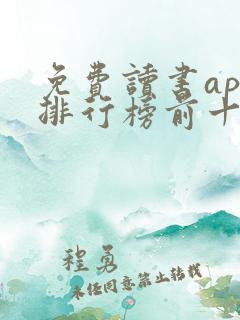 免費讀書ap
排行榜前十
程勇
未经同意禁止转载